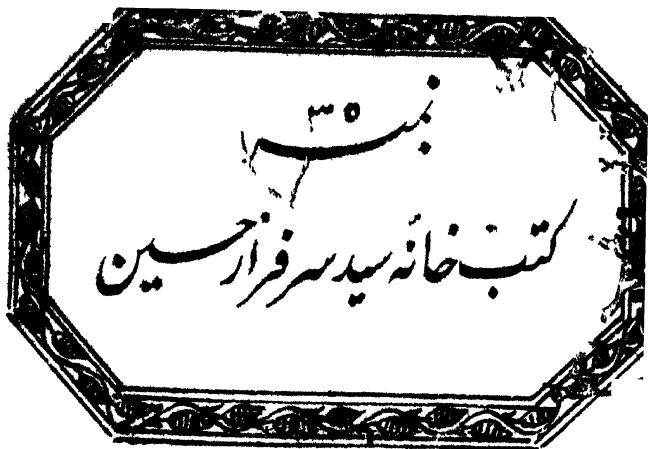 نمبر ۳۵
کتب خانه سید سرفراز حسین